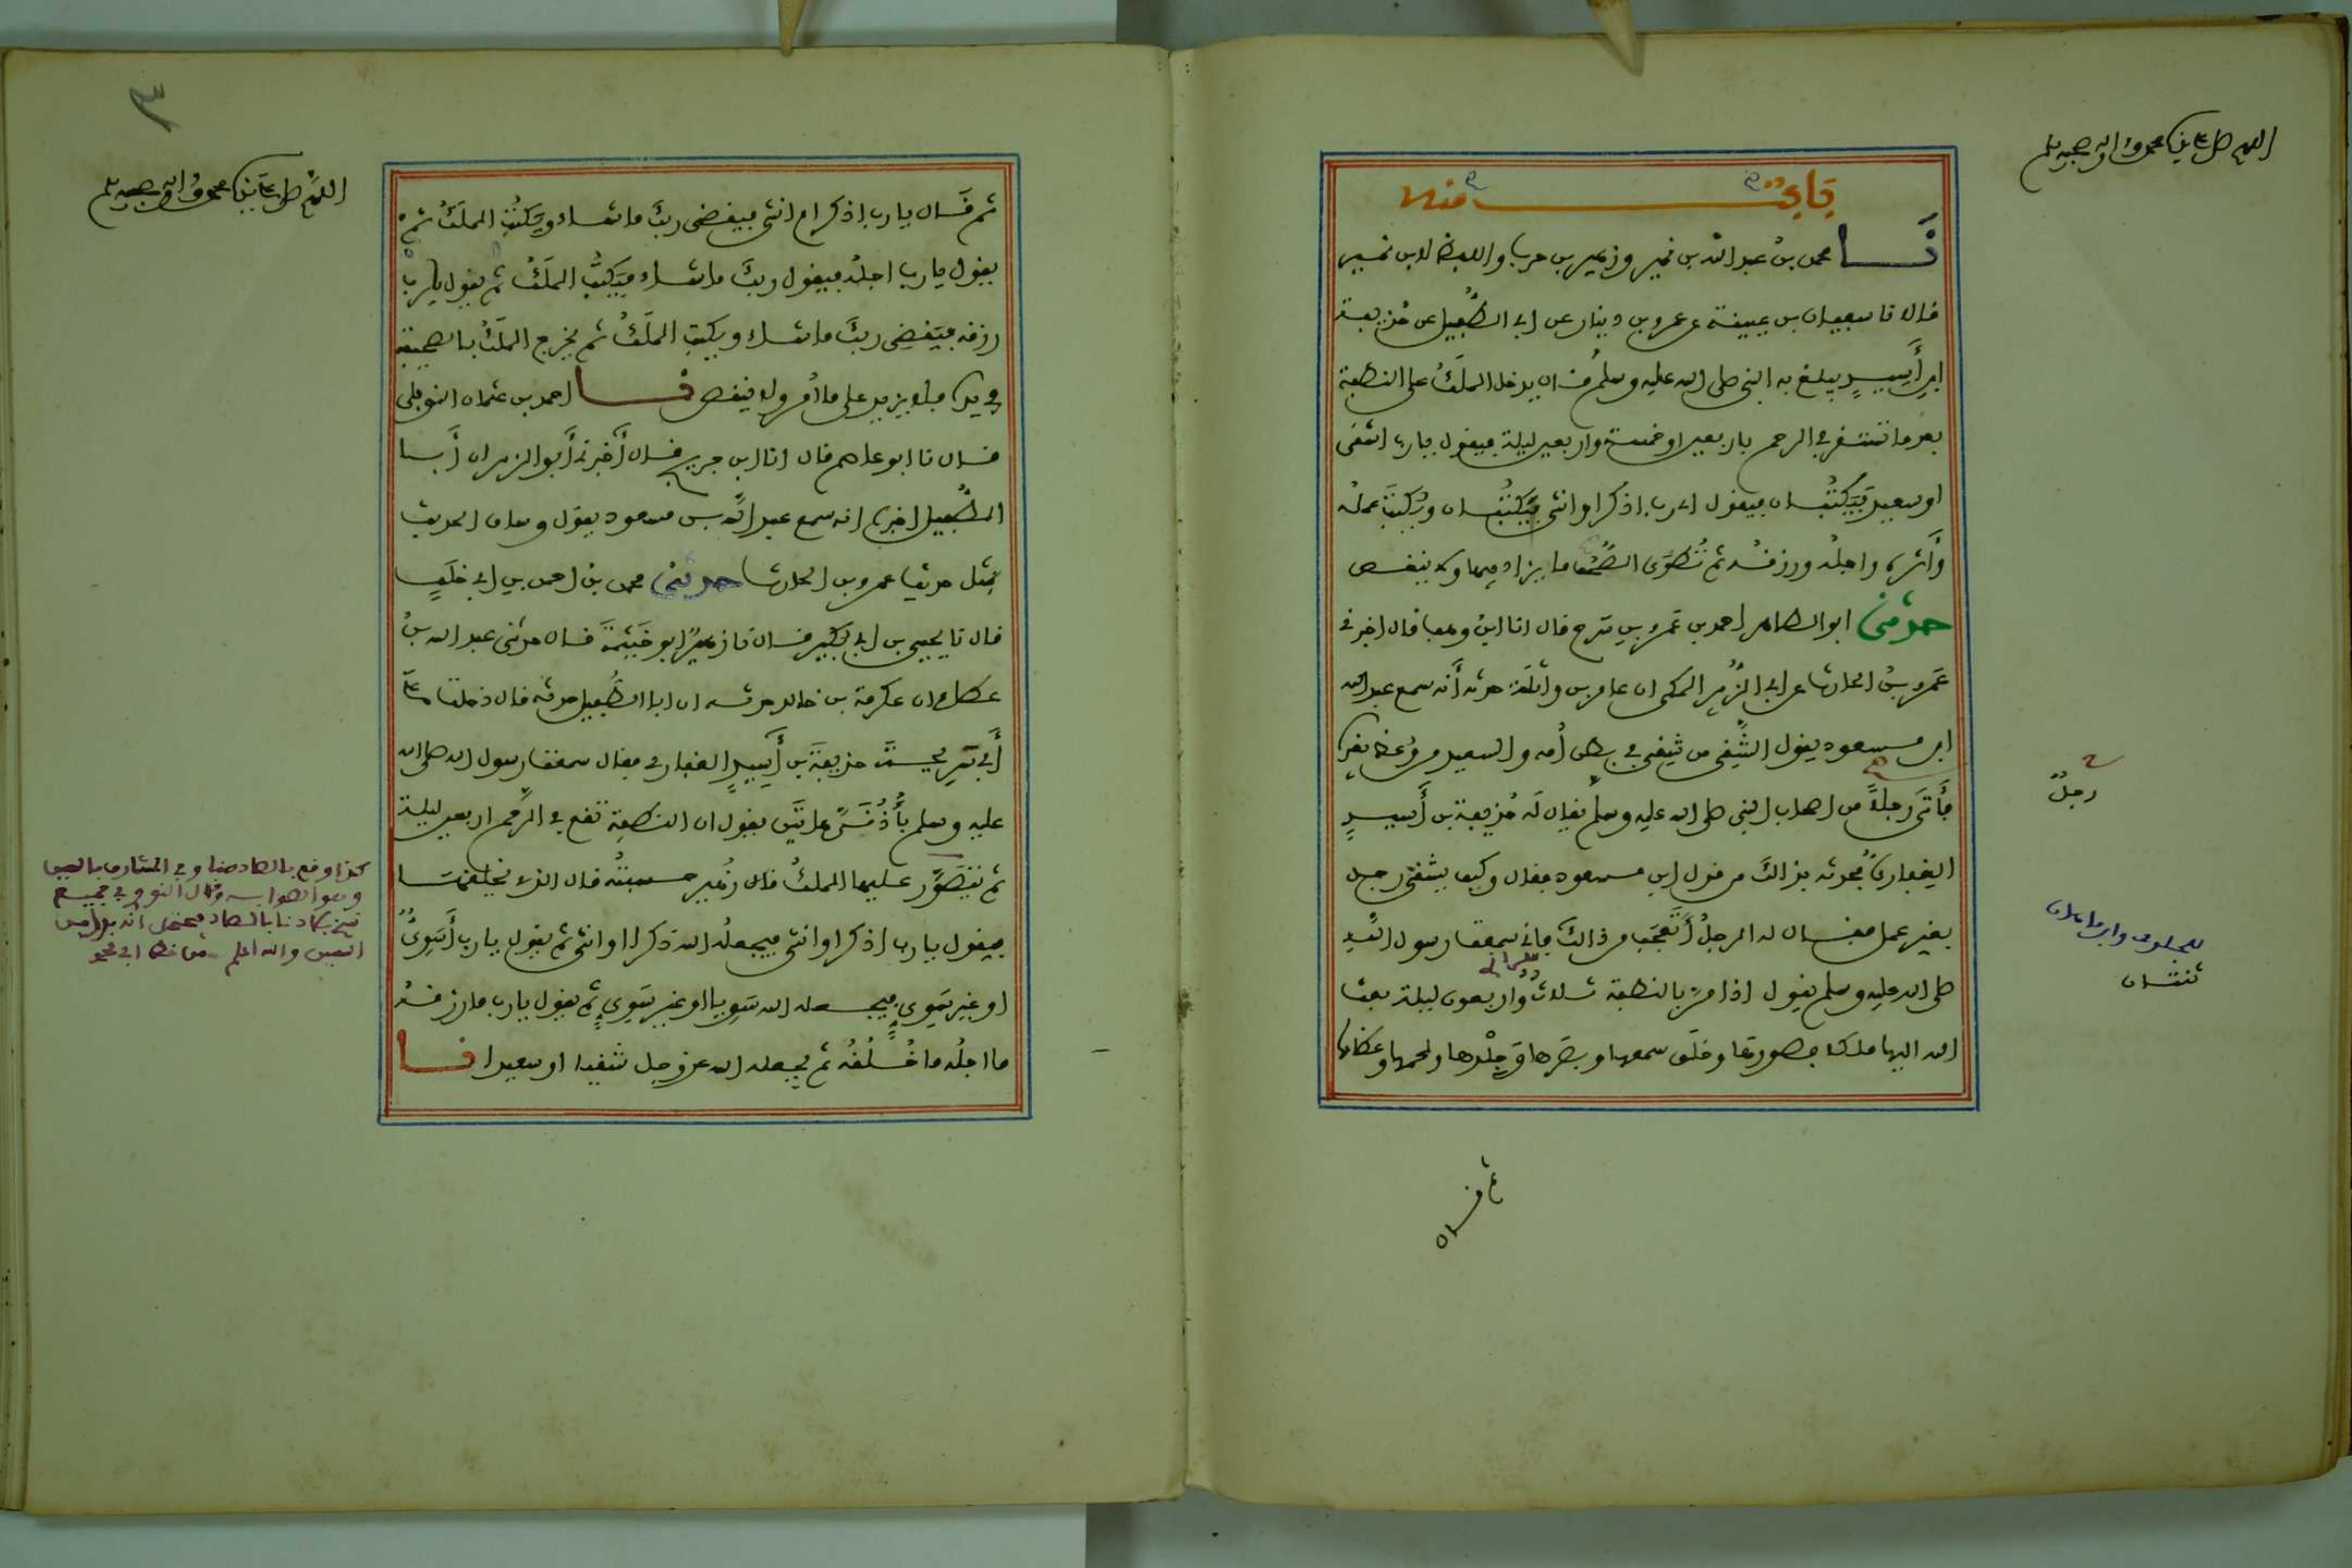 اللهم صل على نبينا محمد وآله وصحبه وسلم
باب منه
نا محمد بن عبد الله بن نمير وزهير بن حرب واللفظ لابن نمير
قالا نا سفيان بن عيينة عن عمرو بن دينار عن أبي الطُّفيل عن حُذيفة
ابن أَسِيدٍ يبلغ به النبي صلى الله عليه وسلم قال يدخل الملَكُ على النطفة
بعد ما تستقر في الرحم بأربعين أو خمسة وأربعين ليلة فيقول يا رب أشقي
أو سعيد فيُكتبان فيقول أي رب أذكر أو أنثى فيُكتبان ويُكتبُ عمله
وأَثره وأجله ورزقه ثم تُطوَى الصُّحُف فلا يزاد فيها ولا ينقص
حدثني أبو الطاهر أحمد بن عَمرو بن سَرح قال أنا ابن وهب قال أخبرني
عَمرو بنُ الحارث عن أبي الزُّبير المكي أن عامر بن واثلة حدثه أَنه سمع عبد الله
ابن مسعود يقول الشَّقي من شقي في بطن أُمه والسعيد من وُعظ بغيره
فأَتَى رجلاً من أصحاب النبي صلى الله عليه وسلم يقال لَه حُذيفة بن أَسِيدٍ
رجلٌ
الغِفاريُّ فحدثه بذالك من قول ابن مسعود فقال وكيف يشقى رجل
بغير عمل فقال له الرجلُ أَتَعجَب من ذالكَ فإني سمعت رسول الله
صلى الله عليه وسلم يقول إذا مرَّ بالنطفة ثلاثٌ وأربعون ليلة بعث
ثنتان
الله إليها ملكا فصورها وخلق سمعها وبصَرها وَجِلْدها ولحمها وعظامها
ثم قال
٣
اللهم صل على نبينا محمد وآله وصحبه وسلم
ثم قَال يا رب أذكر أم أنثى فيقضي ربكَ ما شاء ويَكتُبُ الملَكُ ثم
يقول يا رب أجلُه فيقول ربكَ ما شاء فيَكتُبُ الملَكُ ثم يقول يا رب
رزقه فيَقضِي ربكَ ما شاء ويكتب الملَكُ ثم يخرج الملَكُ بالصحيفة
في يده فلا يزيد على ما أُمر ولا ينقص نا أحمد بن عثمان النوفلي
قال نا أبو عاصم قال أنا ابن جريج قال أَخبرني أَبو الزبير أن أَبا
الطُّفيل أخبره أنه سمع عبد الله بن مسعود يقول وساق الحديث
بمثل حديث عمرو بن الحارث حدثني محمد بن أحمد بن أبي خلَفٍ
قال نا يحيى بن أبي بُكَير قال نا زهيرٌ أبو خَيثَمَةَ قال حدثني عبد الله بنُ
عطاء أن عكرمة بن خالد حدثه أن أبا الطُّفيل حدثه قال دخلت على
أَبي سَرِيحةَ حذيفةَ بن أَسِيدٍ الغفاري فقال سمعت رسول الله صلى الله
عليه وسلم بأُذُنَيَّ هاتين يقول إن النطفة تقع في الرَّحِم أربعين ليلة
ثم يَتَصَوَّر عليها الملكُ قال زُهير حسبتُه قال الذي يخلقها
كذا وقع بالصاد هنا وفي المشارق بالسين
وهو الصواب قال النووي في جميع
نسخ بلادنا بالصاد فيحتمل أنه بدل من
السين والله أعلم
فيقول يا رب أذكر أو أنثى فيجعلُه الله ذكرا أو أنثى ثم يقول يا رب أَسَوِيٌّ
أو غير سَوِيٍّ فيجعله الله سَوِيا أو غير سَوِيٍّ ثم يقول يا رب ما رزقُه
ما أجلُه ما خُلُقُه ثم يجعله الله عز وجل شقيا أو سعيدا نا